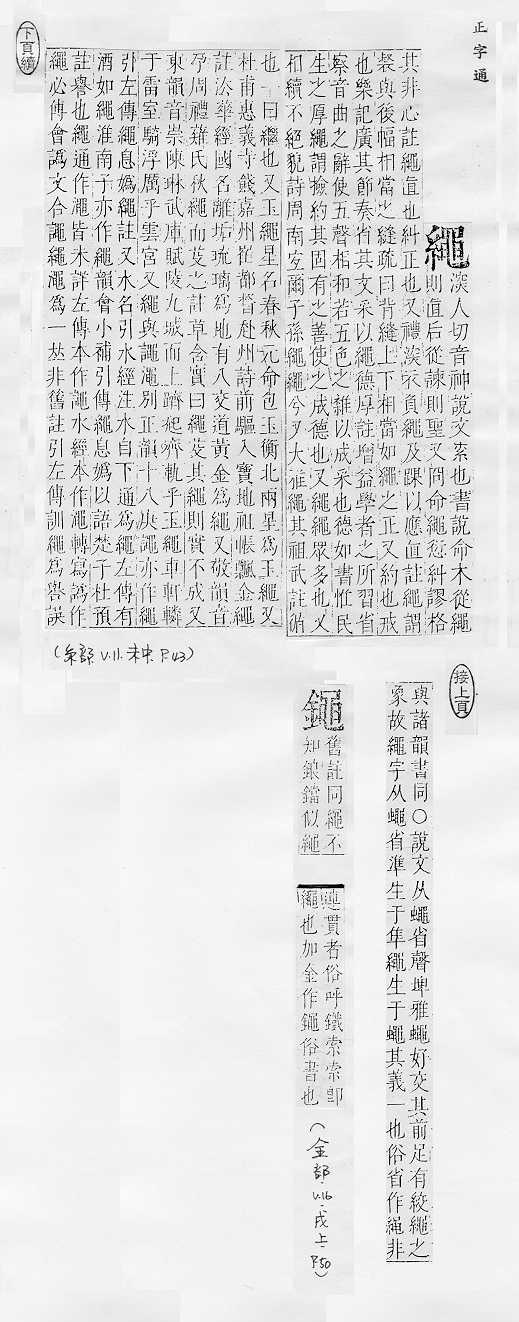 正字通
繩
深人切音神說文索也書說命木從繩
則直后從諫則聖又冏命繩愆糾謬格
其非心註繩直也糾正也又禮深衣負繩及踝以應直註繩謂
裻與後幅相當之縫疏曰背縫上下相當如繩之正又約也戒
也樂記廣其節奏省其文采以繩德厚註增益學者之所習省
察音曲之辭使五聲相和若五色之雜以成采也德如書惟民
生之厚繩謂撿約其固有之善使之成德也又繩繩眾多也又
相續不絕貌詩周南宜爾子孫繩繩兮又大雅繩其祖武註猶
也一曰繼也又玉繩星名春秋元命包玉衡北兩星爲玉繩又
杜甫惠義寺餞嘉州崔都督赴州詩前驅入寶地祖帳飄金繩
註法華經國名離垢琉璃爲地有八交道黃金爲繩又敬韻音
孕周禮薙氏秋繩而芟之註草含實曰繩芟其繩則實不成又
東韻音崇陳琳武庫賦陵九城而上躋起齊軌乎玉繩車軒轔
于雷室騎浮厲乎雲宮又繩與譝澠別正韻十八庚譝亦作繩
引左傳繩息嬀繩註又水名引水經洼水自下通爲繩左傳有
酒如繩淮南子亦作繩韻會小補引傳繩息嬀以語楚子杜預
註譽也繩通作澠皆未詳左傳本作譝水經本作澠轉寫譌作
繩必傳會譌文合譝繩澠爲一𠀤非舊註引左傳訓繩爲譽誤
下頁續
(糸部 V.11.未中 P.43)
接上頁
與諸韻書同○說文从蠅省聲埤雅蠅好交其前足有絞繩之
象故繩字从蠅省準生于隼繩生于蠅其義一也俗省作绳非
鐊
舊註同繩不
知鋃鐺似繩
連貫者俗呼鐵索索卽
繩也加金作鐊俗書也
(金部.V.16.戌上.P.50)